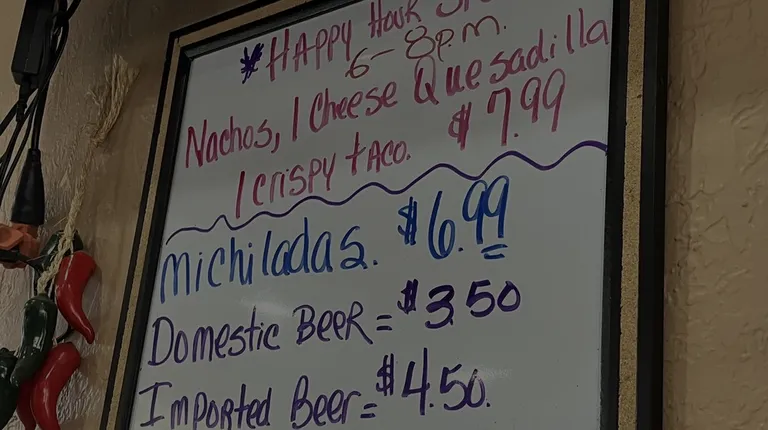 *HAPPY HOUR
6-8p.m.
Nachos, 1 Cheese Quesadilla
1 CRISPY tACO. $7.99
michiladas. $6.99
Domestic BeeR = $3.50
Imported Beer = $4.50.